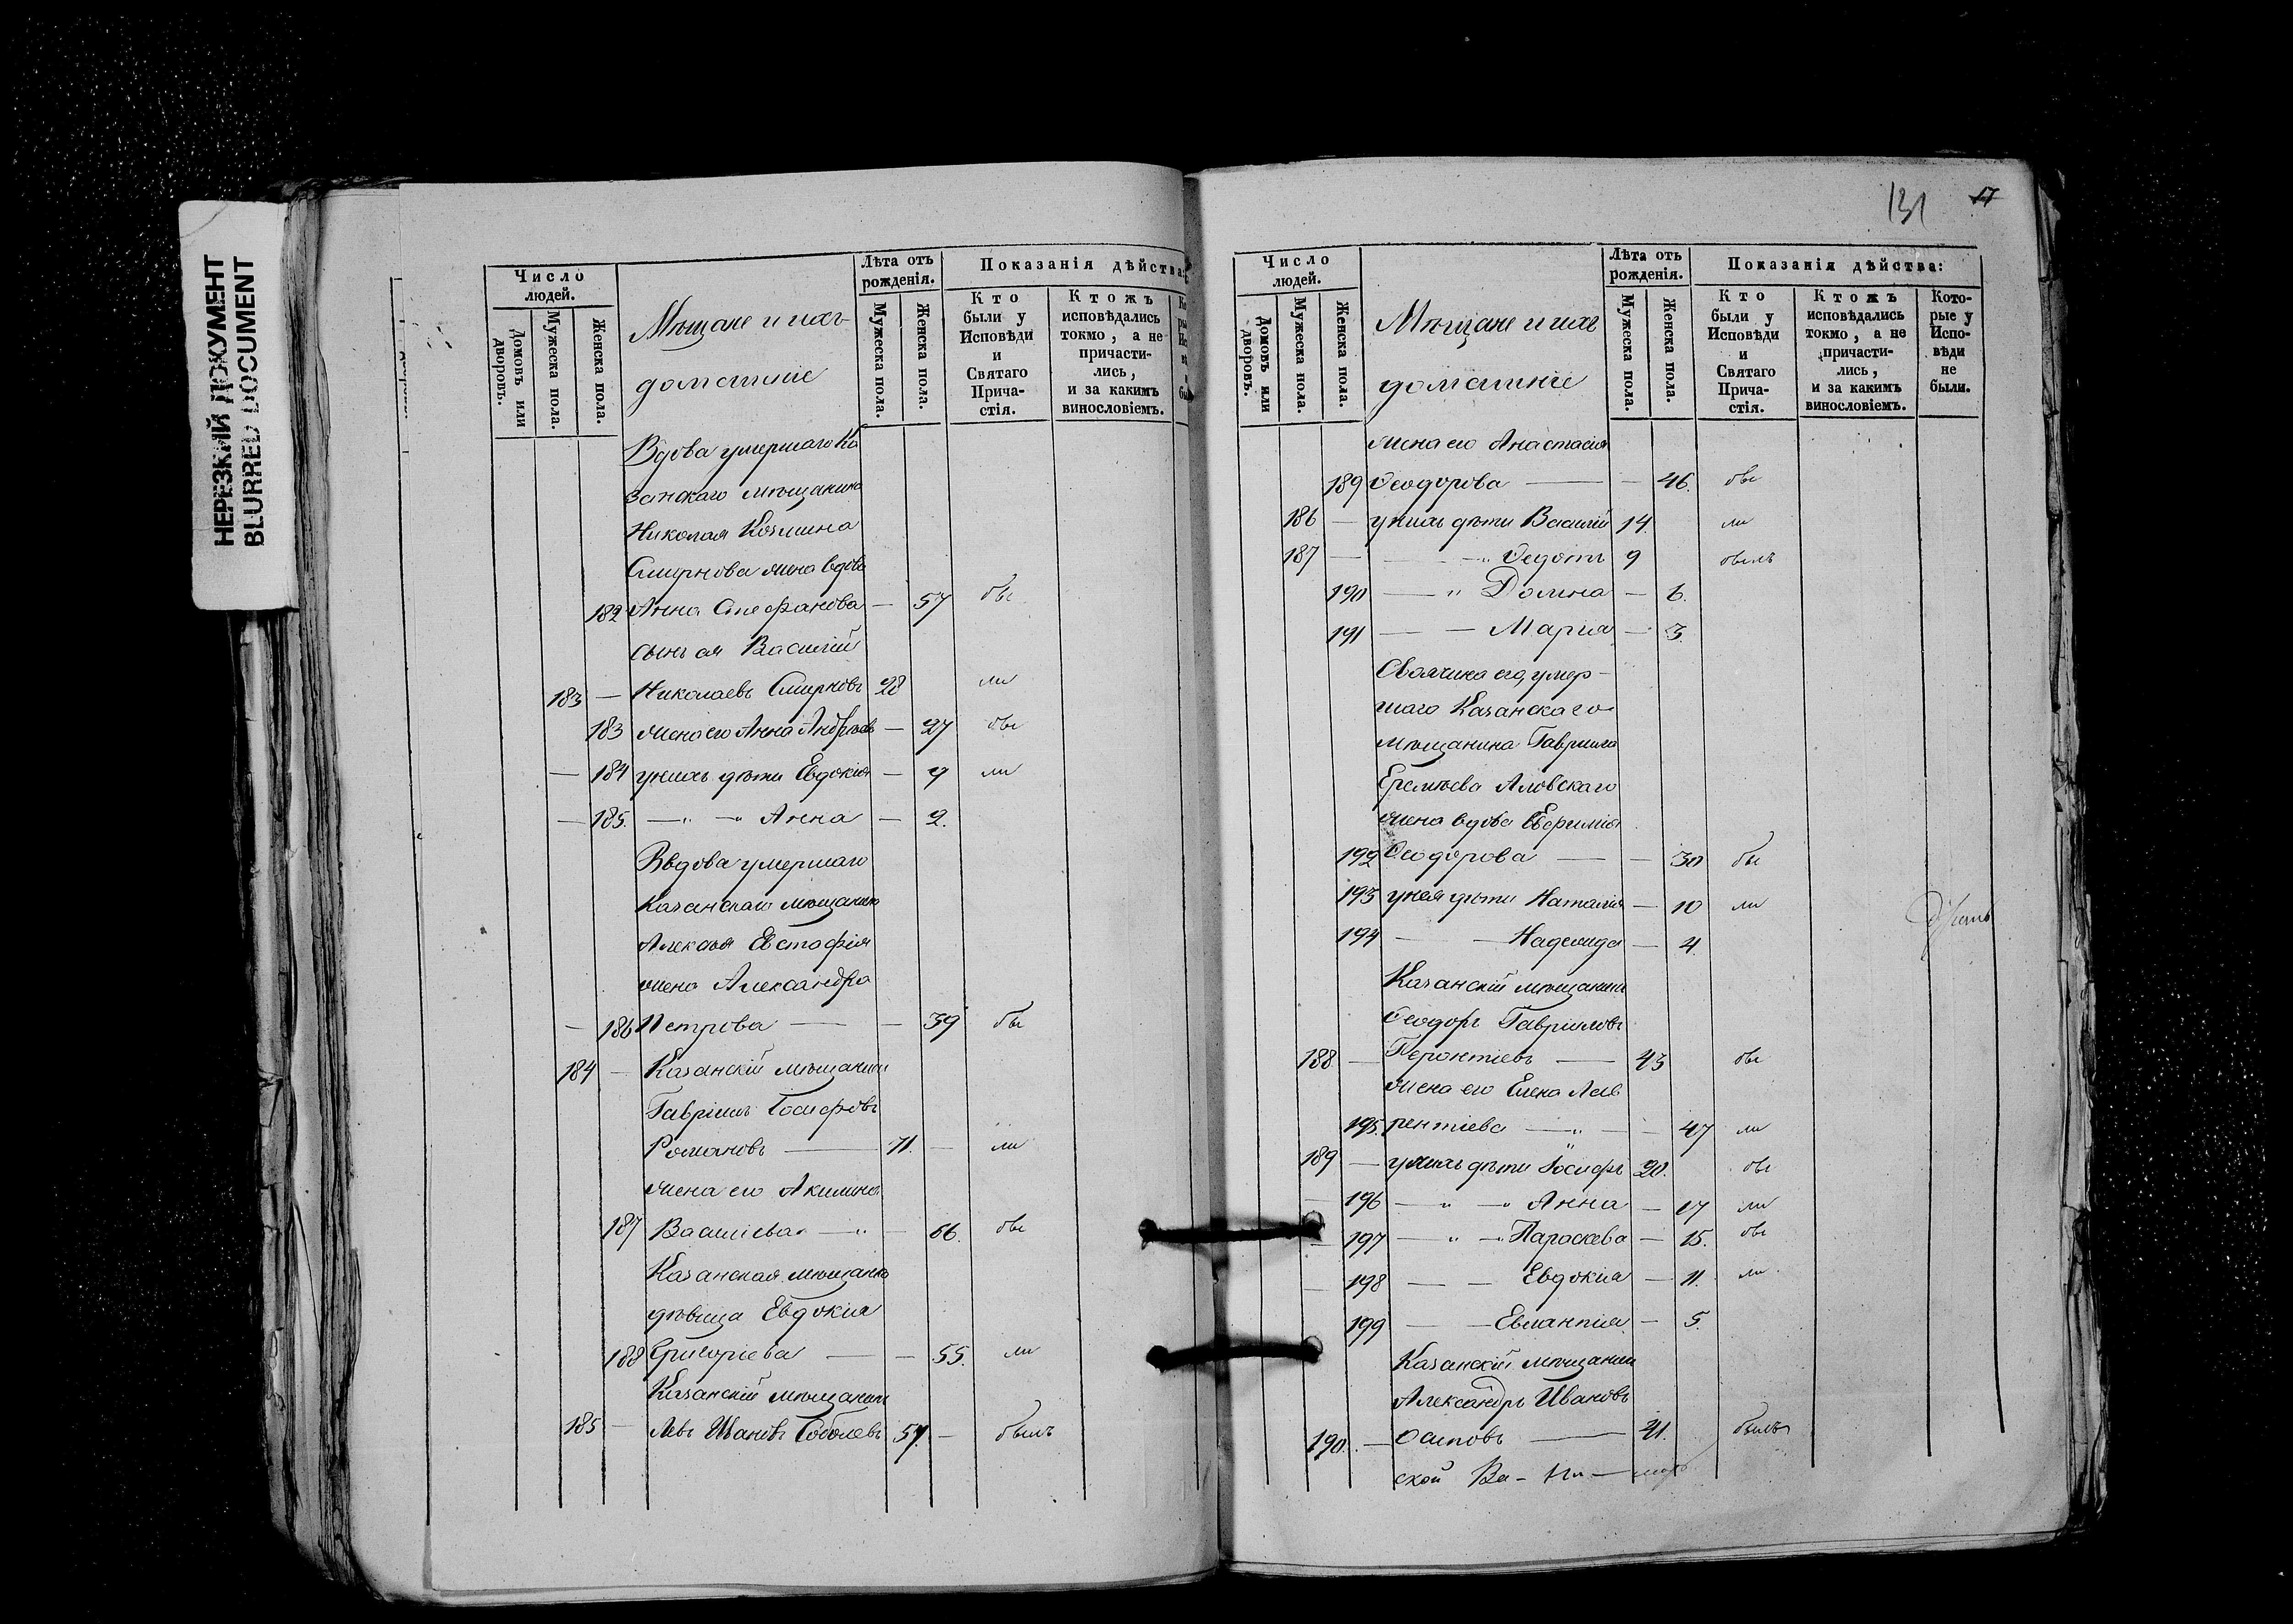 НЕРЕЗКИЙ ДОКУМЕНТ
BLURRED DOCUMENT
Число людей.
Домовъ или дворовъ.
Мужеска пола.
Женска пола.
Мѣщане и ихъ
домашніе
Лѣта отъ рожденія.
Мужеска пола.
Женска пола.
Показанія дѣйства:
Кто были у Исповѣди и Святаго Прича-стія.
Ктожъ исповѣдались токмо, а не причасти-лись, и за какимъ винословіемъ.
Вдова умершаго Ка
занскаго мѣщанина
Николая Козмина
Смирнова жена вдова
182 Анна Стефанова — 57 бы
сынъ ея Василій
183 — Николаевъ Смирновъ 28 ли
183 жена его Анна Андреева — 27 бы
— 184 у нихъ дѣти Евдокія — 9 ли
— 185. —"— —"— Анна — 2.
Вдова умершаго
Казанскаго мѣщанина
Алексѣя Евстафія
жена Александра
— 186 Петрова — — 39 бы
184 — Казанскій мѣщанинъ
Гавріилъ Іосифовъ
Романовъ — 71. — ли
жена его Акилина
187 Васильева —"— — 66. бы
Казанская мѣщанка
дѣвица Евдокія
188 Григоріева — — 55. ли
Казанскій мѣщанинъ
185 — Левъ Ивановъ Соболевъ 57. — былъ
131 17
Число людей.
Домовъ или дворовъ.
Мужеска пола.
Женска пола.
Мѣщане и ихъ
домашніе
Лѣта отъ рожденія.
Мужеска пола.
Женска пола.
Показанія дѣйства:
Кто были у Исповѣди и Святаго Прича-стія.
Ктожъ исповѣдались токмо, а не причасти-лись, и за какимъ винословіемъ.
Кото-рые у Испо-вѣди не были.
жена его Анастасія
189 Ѳеодорова — — 46. бы
186 — у нихъ дѣти Василій 14. ли
187 — — —"— Ѳедотъ 9 былъ
190 — " Домна — 6.
191 — — Марія — 3.
Своячина его, умер-
шаго Казанскаго
мѣщанина Гавріила
Еремѣева Аловскаго
жена вдова Евфимія
192 Ѳеодорова — — 30 бы
193 у нея дѣти Наталія — 10 ли
194 — — Надежда — 4.
Казанскій мѣщанинъ
Ѳеодоръ Гавриловъ
188 — Геронтіевъ — 43 бы
жена его Елена Лав
195. рентіева —"— — 47 ли
189 — у нихъ дѣти Іосифъ 20. бы
— 196 —"— —"— Анна — 17 ли
— 197 —"— —"— Параскева — 15. бы
— 198 — — Евдокія — 11. ли
199 — — Евлампія — 5.
Казанскій мѣщанинъ
Александръ Ивановъ
190. — Осиповъ — 41. былъ
ской